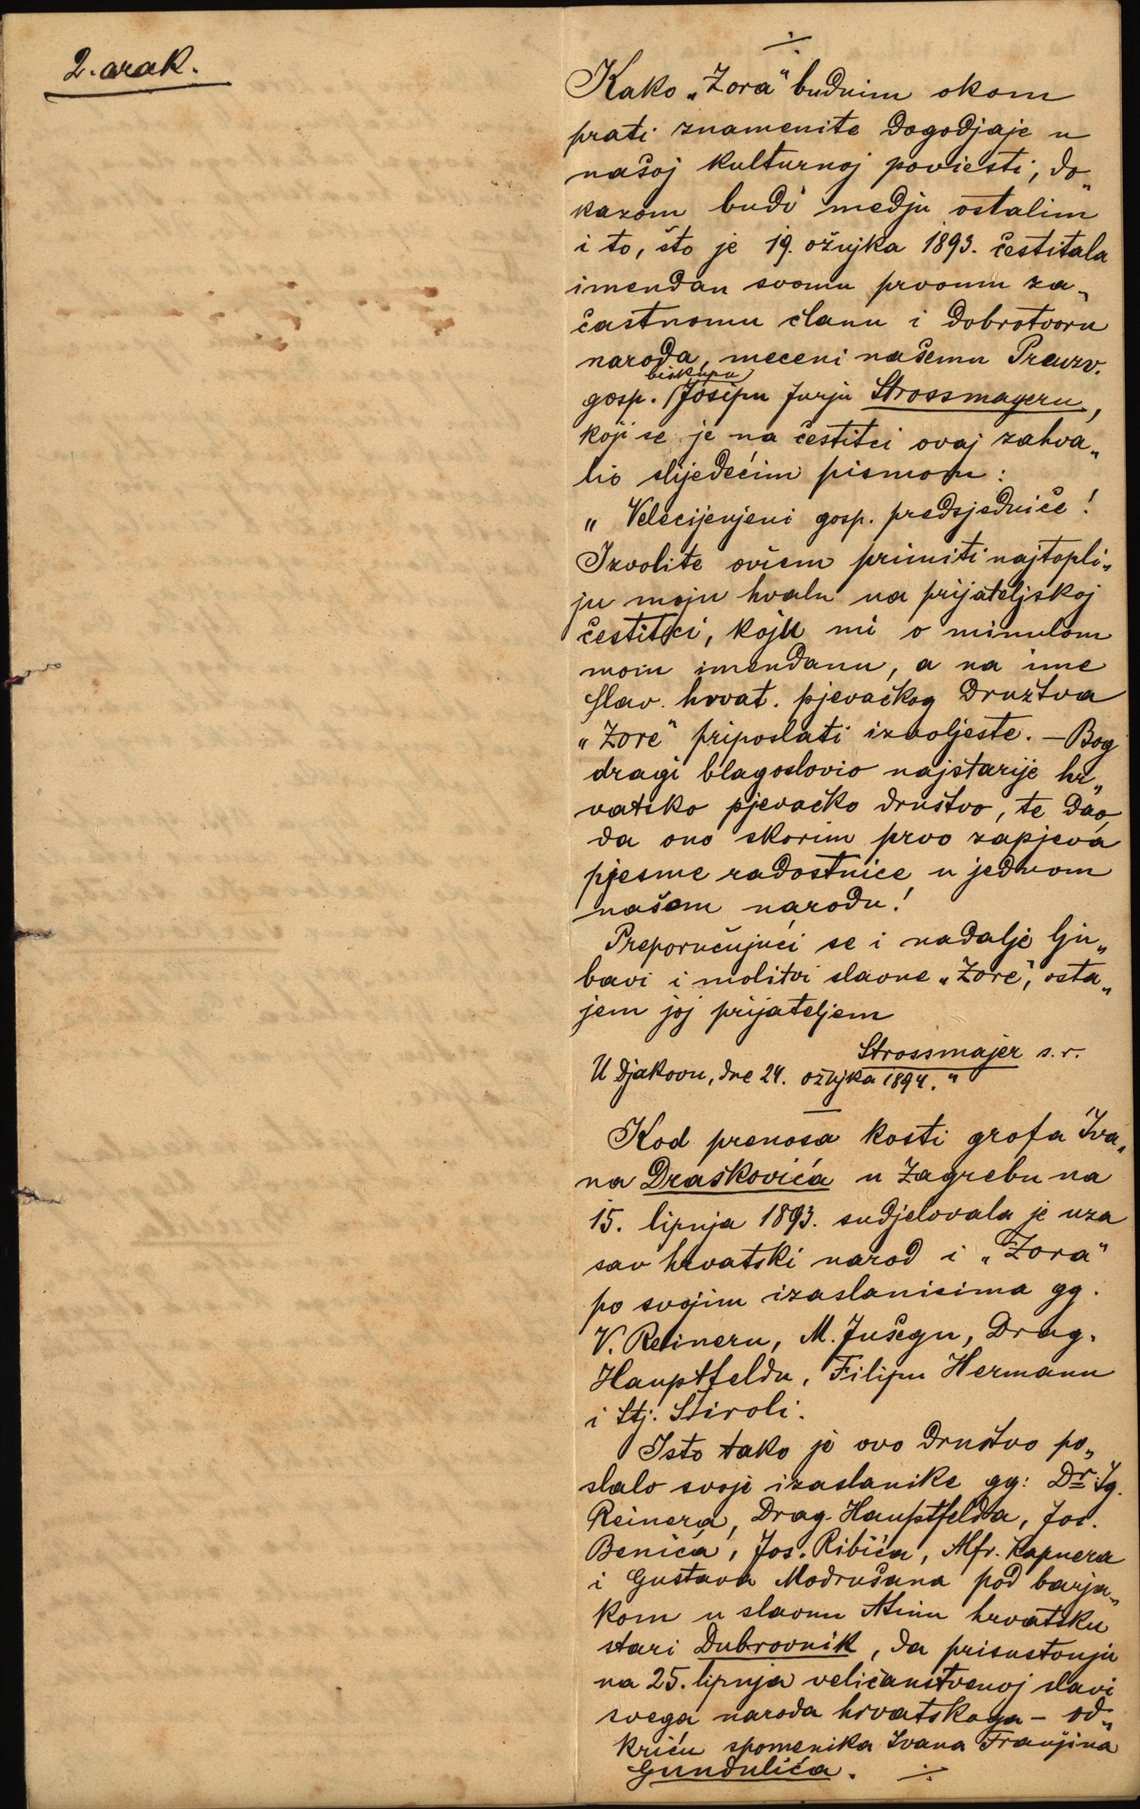 2. arak.
÷
Kako „Zora" budnim okom
prati znamenite dogodjaje u
našoj kulturnoj poviesti, do„
kazom budi medju ostalim
i to, što je 19. ožujka 1893. čestitala
imendan svomu prvomu za„
častnomu članu i dobrotvoru
naroda, meceni našemu Preuzv.
biskupu
gosp. Josipu Jurju Strossmayeru,
koji se je na čestitci ovaj zahva„
lio slijedećim pismom:
„Velecijenjeni gosp. predsjedniče!
Izvolite oviem primiti najtopli„
ju moju hvalu na prijateljskoj
čestitci, koju mi o minulom
mom imendanu, a na ime
Slav. hrvat. pjevačkog Družtva
„Zore" priposlati izvoljeste. — Bog
dragi blagoslovio najstarije hr„
vatsko pjevačko društvo, te dao,
da ono skorim prvo zapjeva
pjesme radostnice u jednom
našem narodu!
Preporučujući se i nadalje lju„
bavi i molitvi slavne „Zore", osta„
jem joj prijateljem
Strossmajer s. r.
U Djakovu, dne 24. ožujka 1894."
—
Kod prenosa kosti grofa Iva„
na Draškovića u Zagrebu na
15. lipnja 1893. sudjelovala je uza
sav hrvatski narod i „Zora"
po svojim izaslanicima gg.
V. Reineru, M. Jušegu, Drag.
Hauptfeldu, Filipu Hermanu
i Stj. Široli.
Isto tako je ovo društvo po„
slalo svoje izaslanike gg: Dr. Ig.
Reinera, Drag. Hauptfelda, Jos.
Benića, Jos. Ribića, Alfr. Kapnera
i Gustava Modrušana pod barja„
kom u slavnu Atinu hrvatsku
stari Dubrovnik, da prisustvuju
na 25. lipnja veličanstvenoj slavi
svega naroda hrvatskoga – od„
kriću spomenika Ivana Franjina
Gundulića. ÷